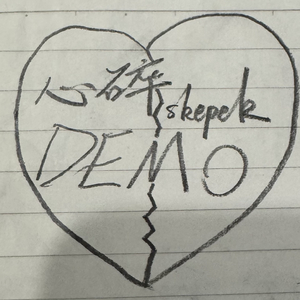 心碎
skepek
DEMO